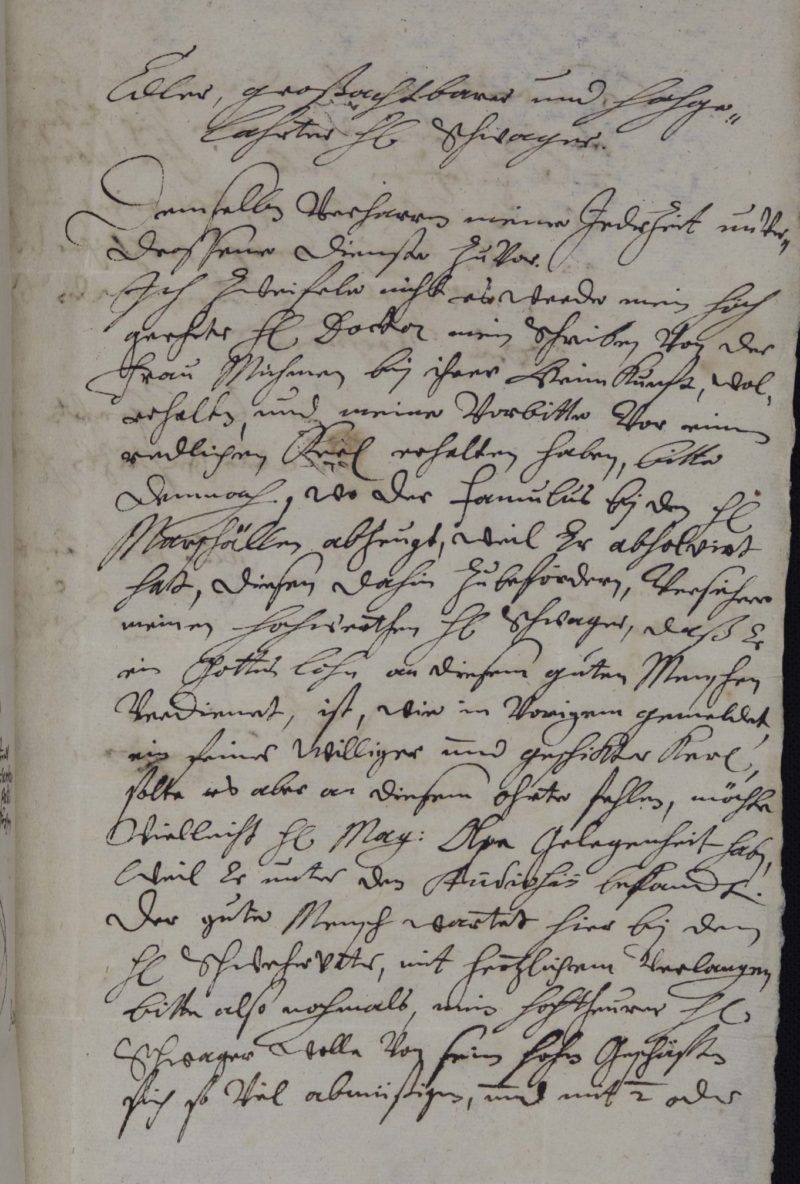 Edler, großachtbarer und Hochge-
lahrter H. Schwager.
Demselben Verharren meine Jederzeit unver-
drossene Dienste zuvor.
Ich zweifele nicht es werde mein hoch
geehrter H. Doctor mein Schreiben von der
Frau Muhmen bey ihrer Heimkunft, wol
erhalten, und meine Vorbitte vor einen
redlichen Kerl erhalten haben, bitte
demnach, wo der Famulus bey den H.
Marschällen abzeugt, weil Er absolvirt
hat, diesen dahin zubefördern, Versichere
meinen hochwerthen H. Schwager, daß Er
ein Gottes lohn an diesem guten Menschen
Verdienet, ist, wie in Vorigem gemeldet,
ein feiner williger und geschickter Kerl,
solte es aber an diesem ohrte fehlen, möchte
Vielleicht H. Mag: Gelegenheit haben,
weil Er unter den Studiosis bekandt.
Der gute Mensch wartet hier bey dem
H. Schwehrvater, mit hertzlichem Verlangen
bitte also nochmals, mein hochtheurer H.
Schwager wolle von sein hohen Geschäften
sich so viel abmüßigen, und mit 2 oder